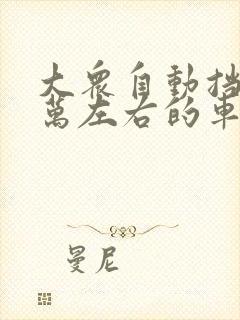 大眾自動擋
萬左右的車
曼尼